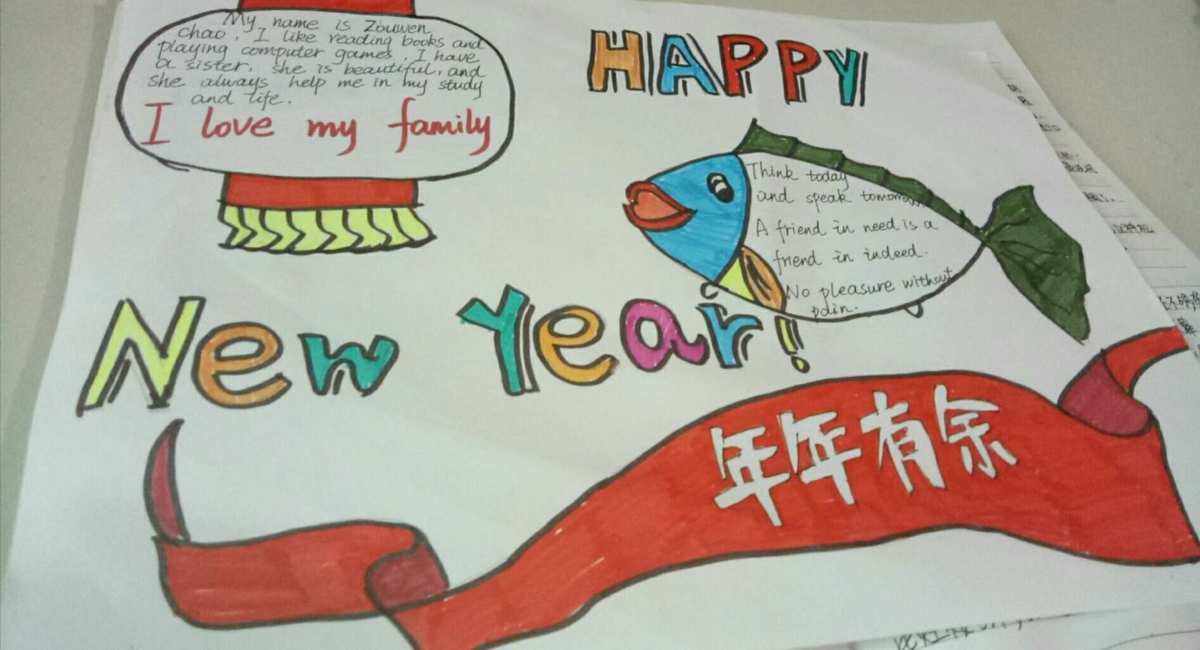 My name is Zouwen
chao, I like reading books and
playing computer games. I have
a sister. she is beautiful, and
she always help me in my study
and life.
I love my family
HAPPY
Think today
and speak tomorrow
A friend in need is a
friend in indeed.
No pleasure without
pain.
New Year!
年年有余